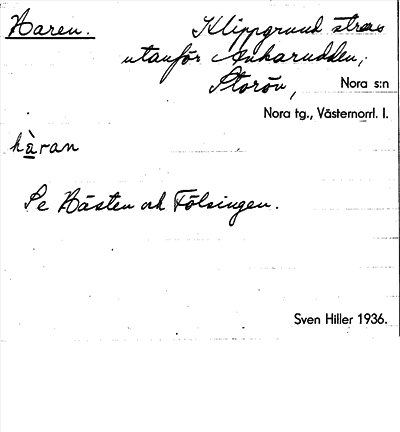 Haren. Klippgrund strax
utanför Ankarudden,
Storön, Nora s:n
Nora tg., Västernorrl. l.
hàran
Se Hästen och Fölungen.
Sven Hiller 1936.